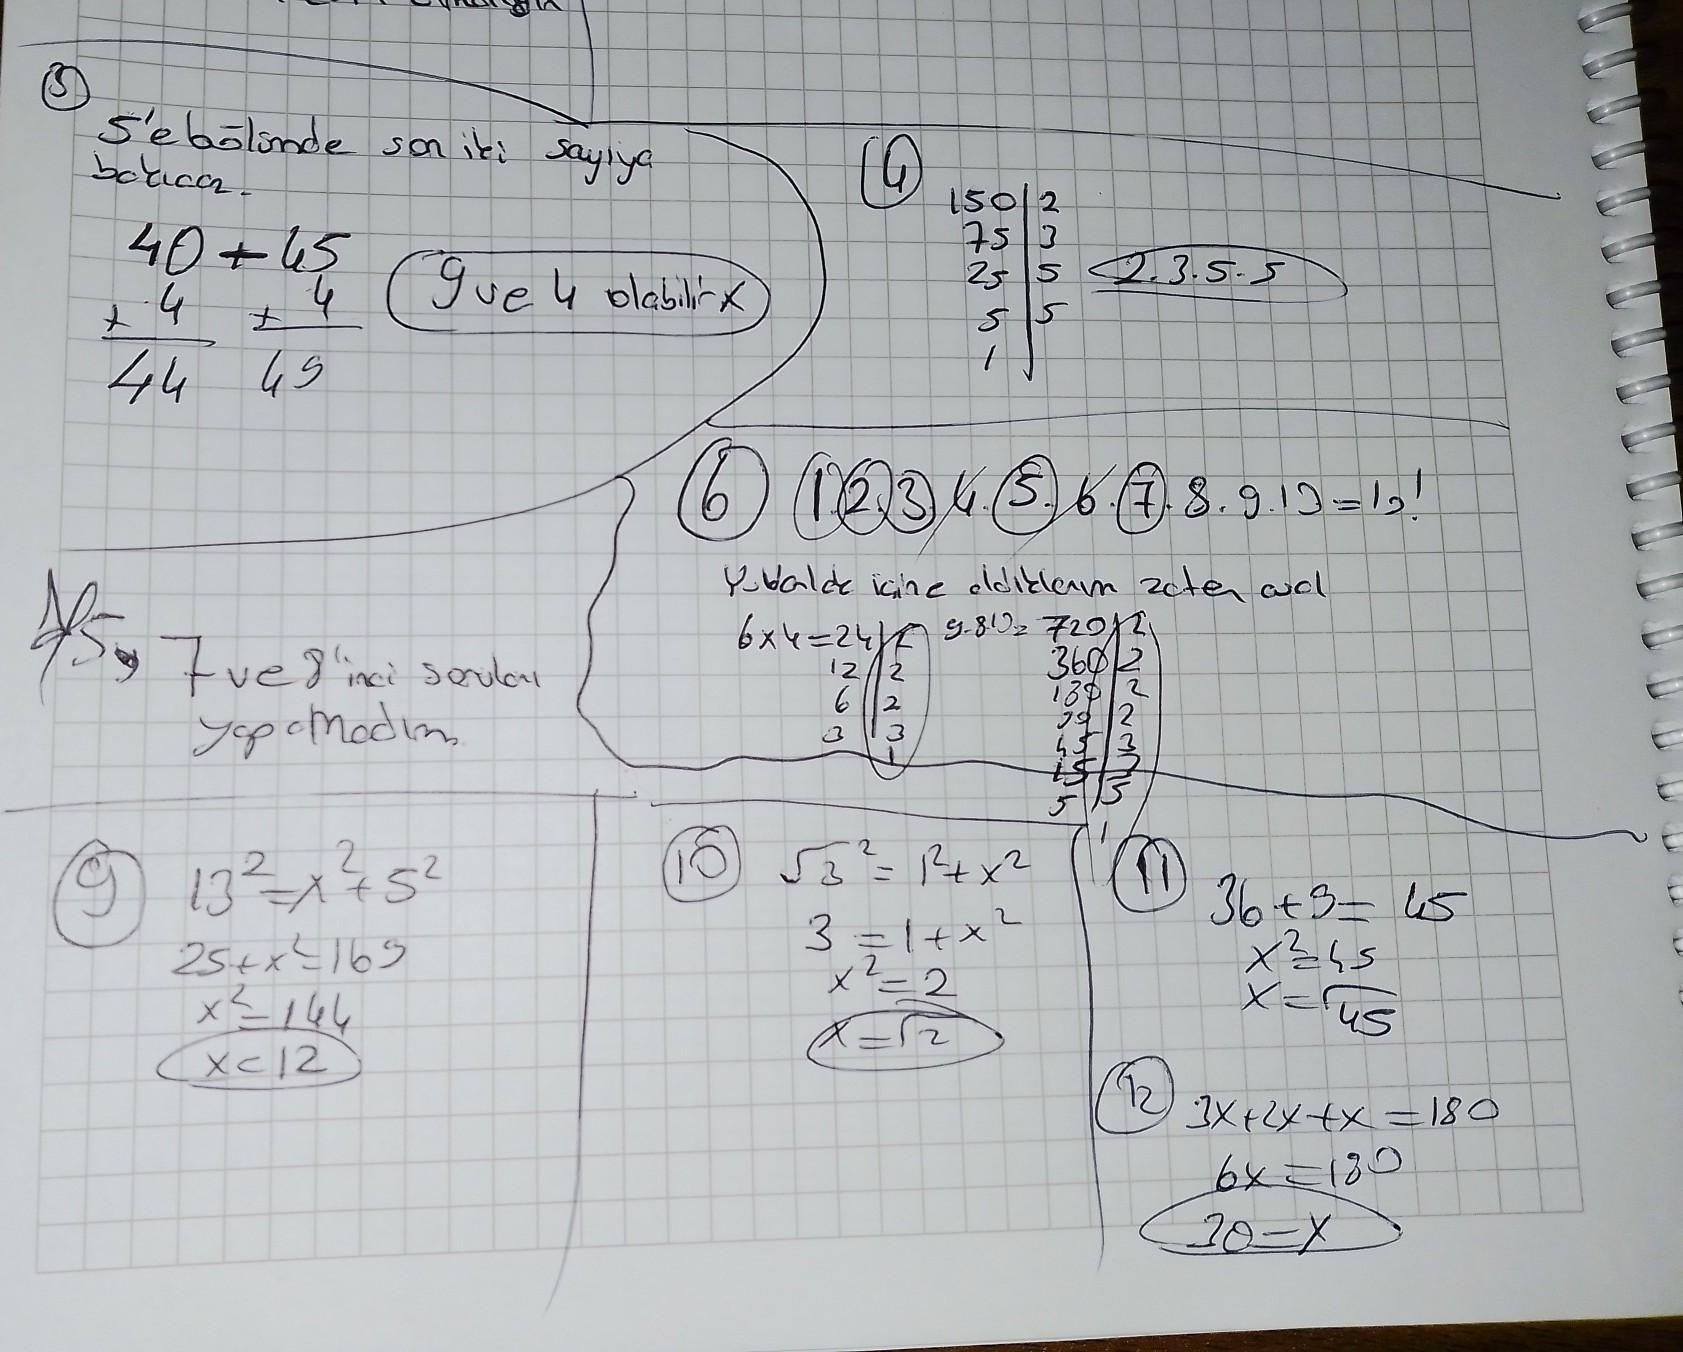 3
5'e bölünde son iki sayıya
bakıcaz.
40 + 45
+ 4 + 4
44 49
9 ve 4 olabilir x
4
150 | 2
75 | 3
25 | 5
5 | 5
1
2.3.5.5
6
1.2.3.4.5.6.7.8.9.10=10!
Yuvarlak içine aldıklarım zaten asal
6x4=24 | 2
12 | 2
6 | 2
3 | 3
1
9.8.10= 720 | 2
360 | 2
180 | 2
90 | 2
45 | 3
15 | 3
5 | 5
1
5, 7 ve 8'inci soruları
yapamadım
9
13²=x²+5²
25+x²=169
x²=144
x=12
10
√3²=1²+x²
3=1+x²
x²=2
x=√2
11
36+9=45
x²=45
x=√45
12
3x+2x+x=180
6x=180
30=x